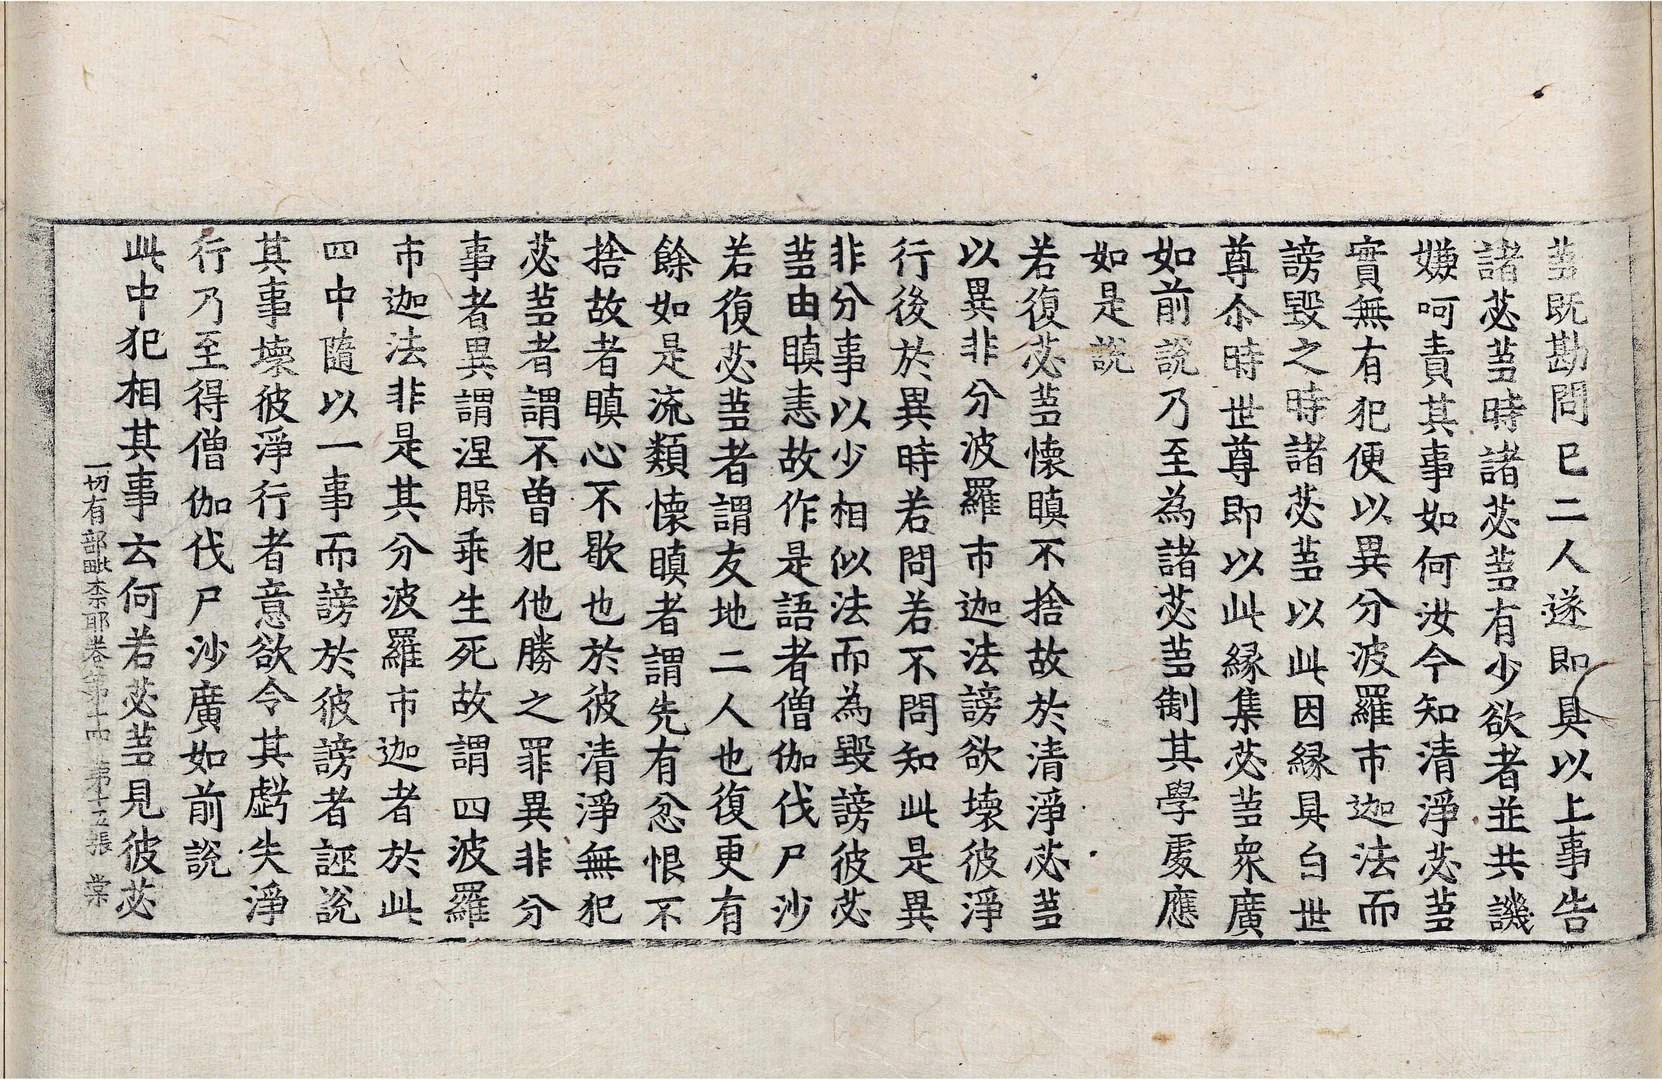 蒭既勘問已二人遂即具以上事告
諸苾蒭時諸苾蒭有少欲者並共譏
嫌呵責其事如何汝今知清淨苾蒭
實無有犯便以異分波羅市迦法而
謗毀之時諸苾蒭以此因縁具白世
尊尒時世尊即以此縁集苾蒭衆廣
如前說乃至為諸苾蒭制其學處應
如是說
若復苾蒭懷瞋不捨故於清淨苾蒭
以異非分波羅市迦法謗欲壞彼淨
行後於異時若問若不問知此是異
非分事以少相似法而為毀謗彼苾
蒭由瞋恚故作是語者僧伽伐尸沙
若復苾蒭者謂友地二人也復更有
餘如是流類懷瞋者謂先有忿恨不
捨故者瞋心不歇也於彼清淨無犯
苾蒭者謂不曾犯他勝之罪異非分
事者異謂涅槃乖生死故謂四波羅
市迦法非是其分波羅市迦者於此
四中隨以一事而謗於彼謗者誣說
其事壞彼淨行者意欲令其虧失淨
行乃至得僧伽伐尸沙廣如前說
此中犯相其事云何若苾蒭見彼苾
一切有部毗柰耶卷第十四 第十五張 棠